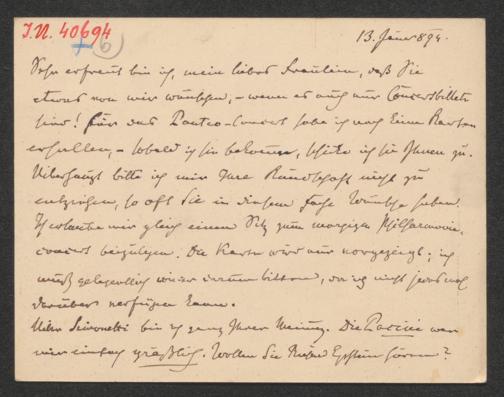 I.N. 40694
13. Jänner 894.
Sehr erfreut bin ich, mein liebes Fräulein, daß Sie
etwas von mir wünschen, – wenn es auch nur Concertbillets
sind! Für das Concert habe ich noch keine Karten
erhalten, – sobald ich sie bekomme, schicke ich sie Ihnen zu.
Überhaupt bitte ich mir Ihre Kundschaft nicht zu
entziehen, so oft Sie in diesem Fache Wünsche haben.
Ich erlaube mir gleich einen Sitz zum morgigen Philharmonie-
concert beizulegen. Die Karte wird nur vorgezeigt; ich
muß gelegentlich wieder darum bitten, da ich nicht jedesmal
darüber verfügen kann.
Über Simonetti bin ich ganz Ihrer Meinung. Die war
mir einfach gräßlich. Wollen Sie Epstein hören?